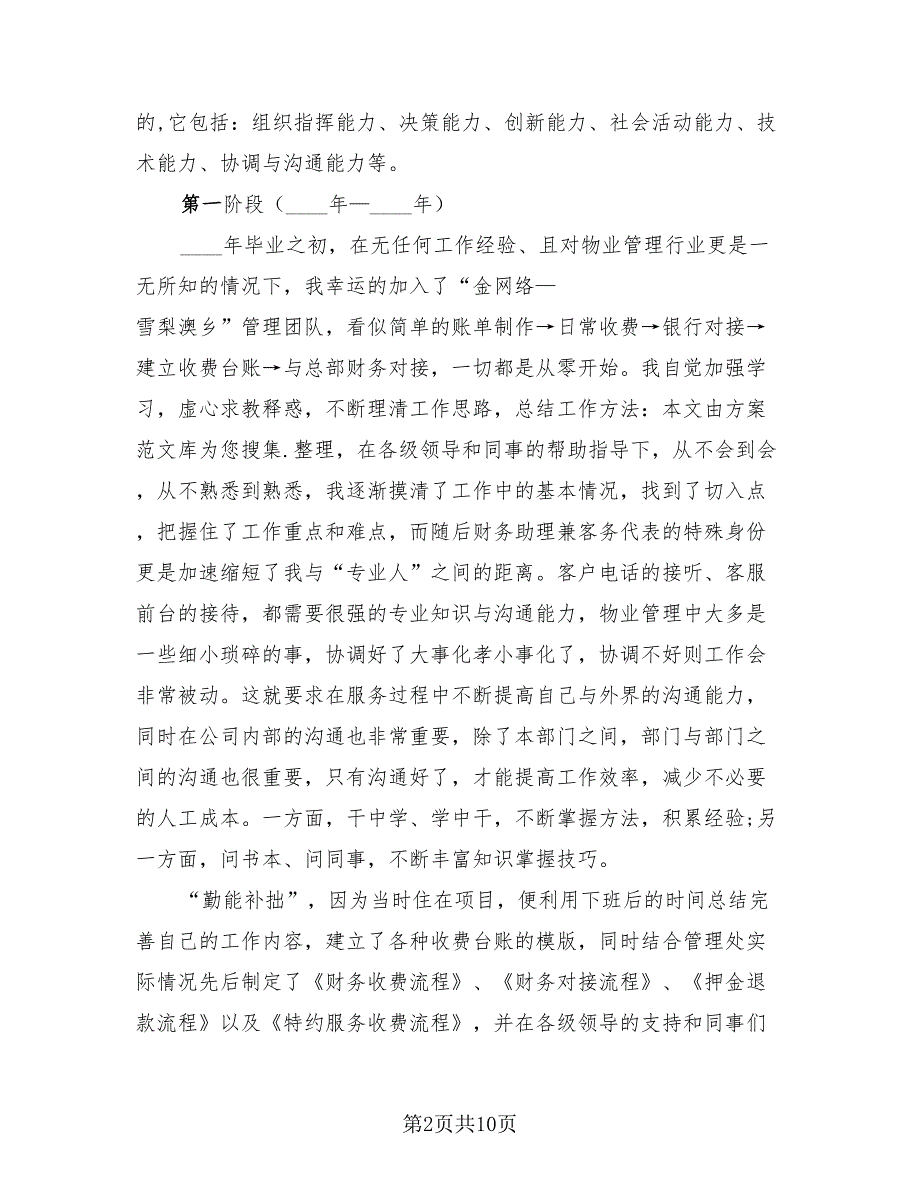 的,它包括：组织指挥能力、决策能力、创新能力、社会活动能力、技
术能力、协调与沟通能力等。
第一阶段（____年—____年）
____年毕业之初，在无任何工作经验、且对物业管理行业更是一
无所知的情况下，我幸运的加入了“金网络—
雪梨澳乡”管理团队，看似简单的账单制作→日常收费→银行对接→
建立收费台账→与总部财务对接，一切都是从零开始。我自觉加强学
习，虚心求教释惑，不断理清工作思路，总结工作方法：本文由方案
范文库为您搜集.整理，在各级领导和同事的帮助指导下，从不会到会
，从不熟悉到熟悉，我逐渐摸清了工作中的基本情况，找到了切入点
，把握住了工作重点和难点，而随后财务助理兼客务代表的特殊身份
更是加速缩短了我与“专业人”之间的距离。客户电话的接听、客服
前台的接待，都需要很强的专业知识与沟通能力，物业管理中大多是
一些细小琐碎的事，协调好了大事化孝小事化了，协调不好则工作会
非常被动。这就要求在服务过程中不断提高自己与外界的沟通能力，
同时在公司内部的沟通也非常重要，除了本部门之间，部门与部门之
间的沟通也很重要，只有沟通好了，才能提高工作效率，减少不必要
的人工成本。一方面，干中学、学中干，不断掌握方法，积累经验;另
一方面，问书本、问同事，不断丰富知识掌握技巧。
“勤能补拙”，因为当时住在项目，便利用下班后的时间总结完
善自己的工作内容，建立了各种收费台账的模版，同时结合管理处实
际情况先后制定了《财务收费流程》、《财务对接流程》、《押金退
款流程》以及《特约服务收费流程》，并在各级领导的支持和同事们
第2页共10页